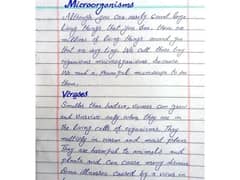 Microorganisms
Although you can easily count large
living things that you see, there are
millions of living things around you
that we see. We call these tiny
organisms microorganisms because
we need a microscope to see
them.
Viruses
Smaller than bacteria, viruses can grow
and survive only when they are in
the living cells of organisms. They
multiply in warm and moist places
They are harmful to animals and
plants and can cause many disease
Some illnesses caused by a virus in